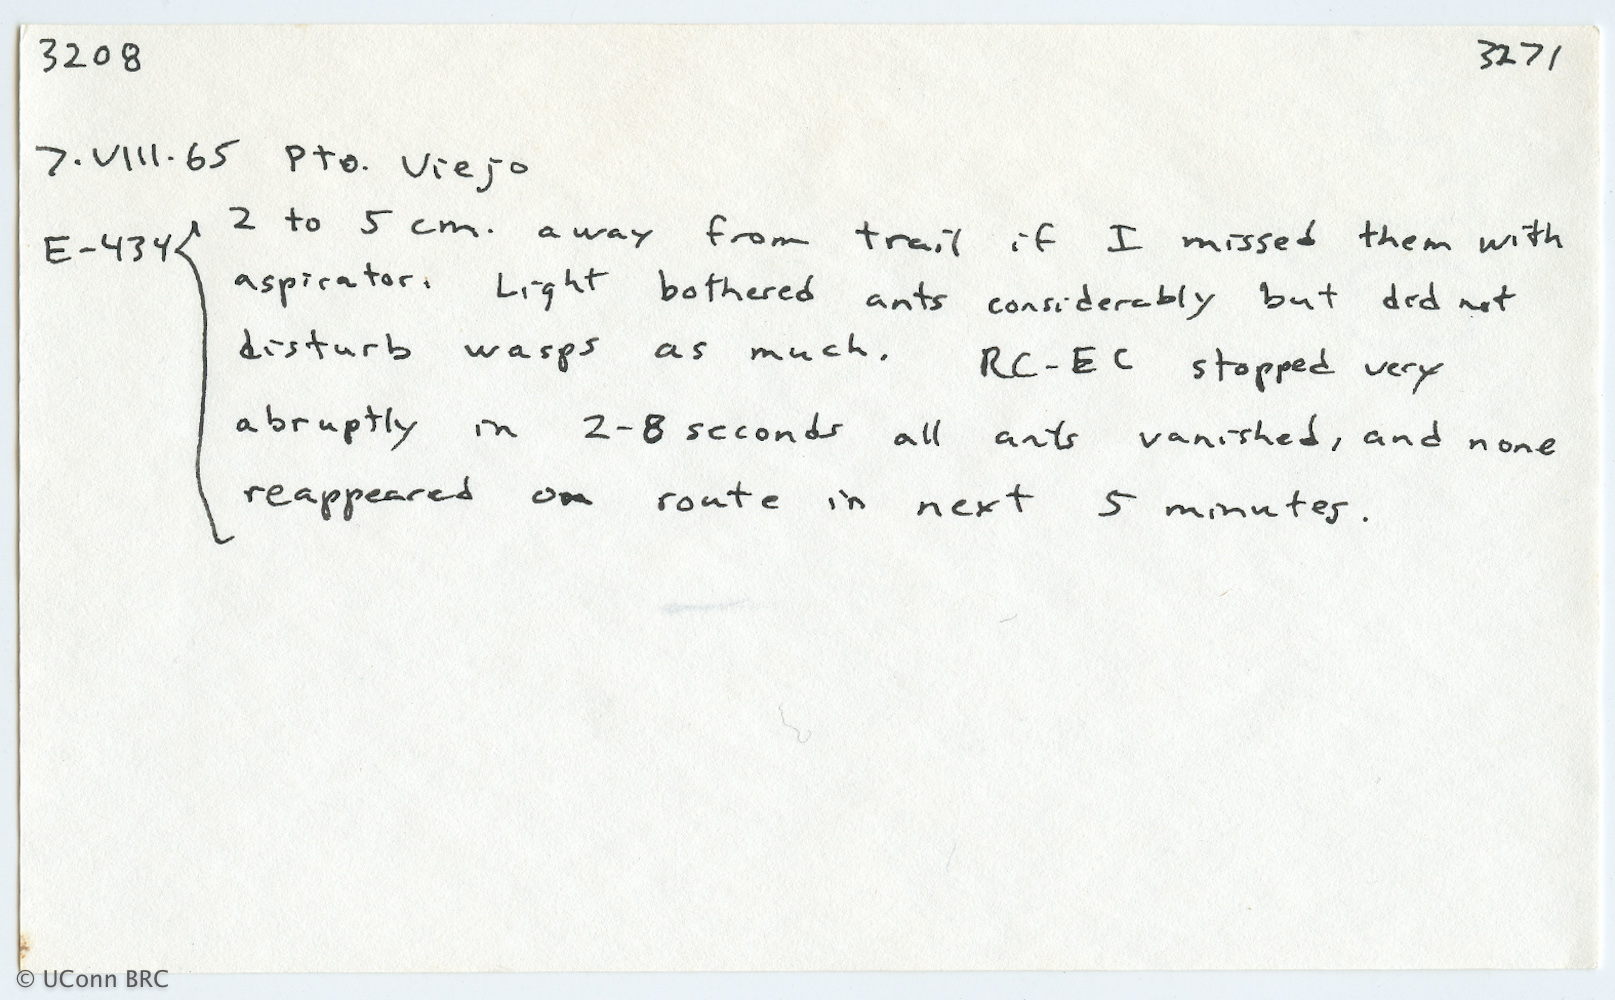 3208 3271
7.VIII.65 Pto. Viejo
E-434 { 2 to 5 cm. away from trail if I missed them with
aspirator. Light bothered ants considerably but did not
disturb wasps as much. RC-EC stopped very
abruptly in 2-8 seconds all ants vanished, and none
reappeared on route in next 5 minutes.
© UConn BRC